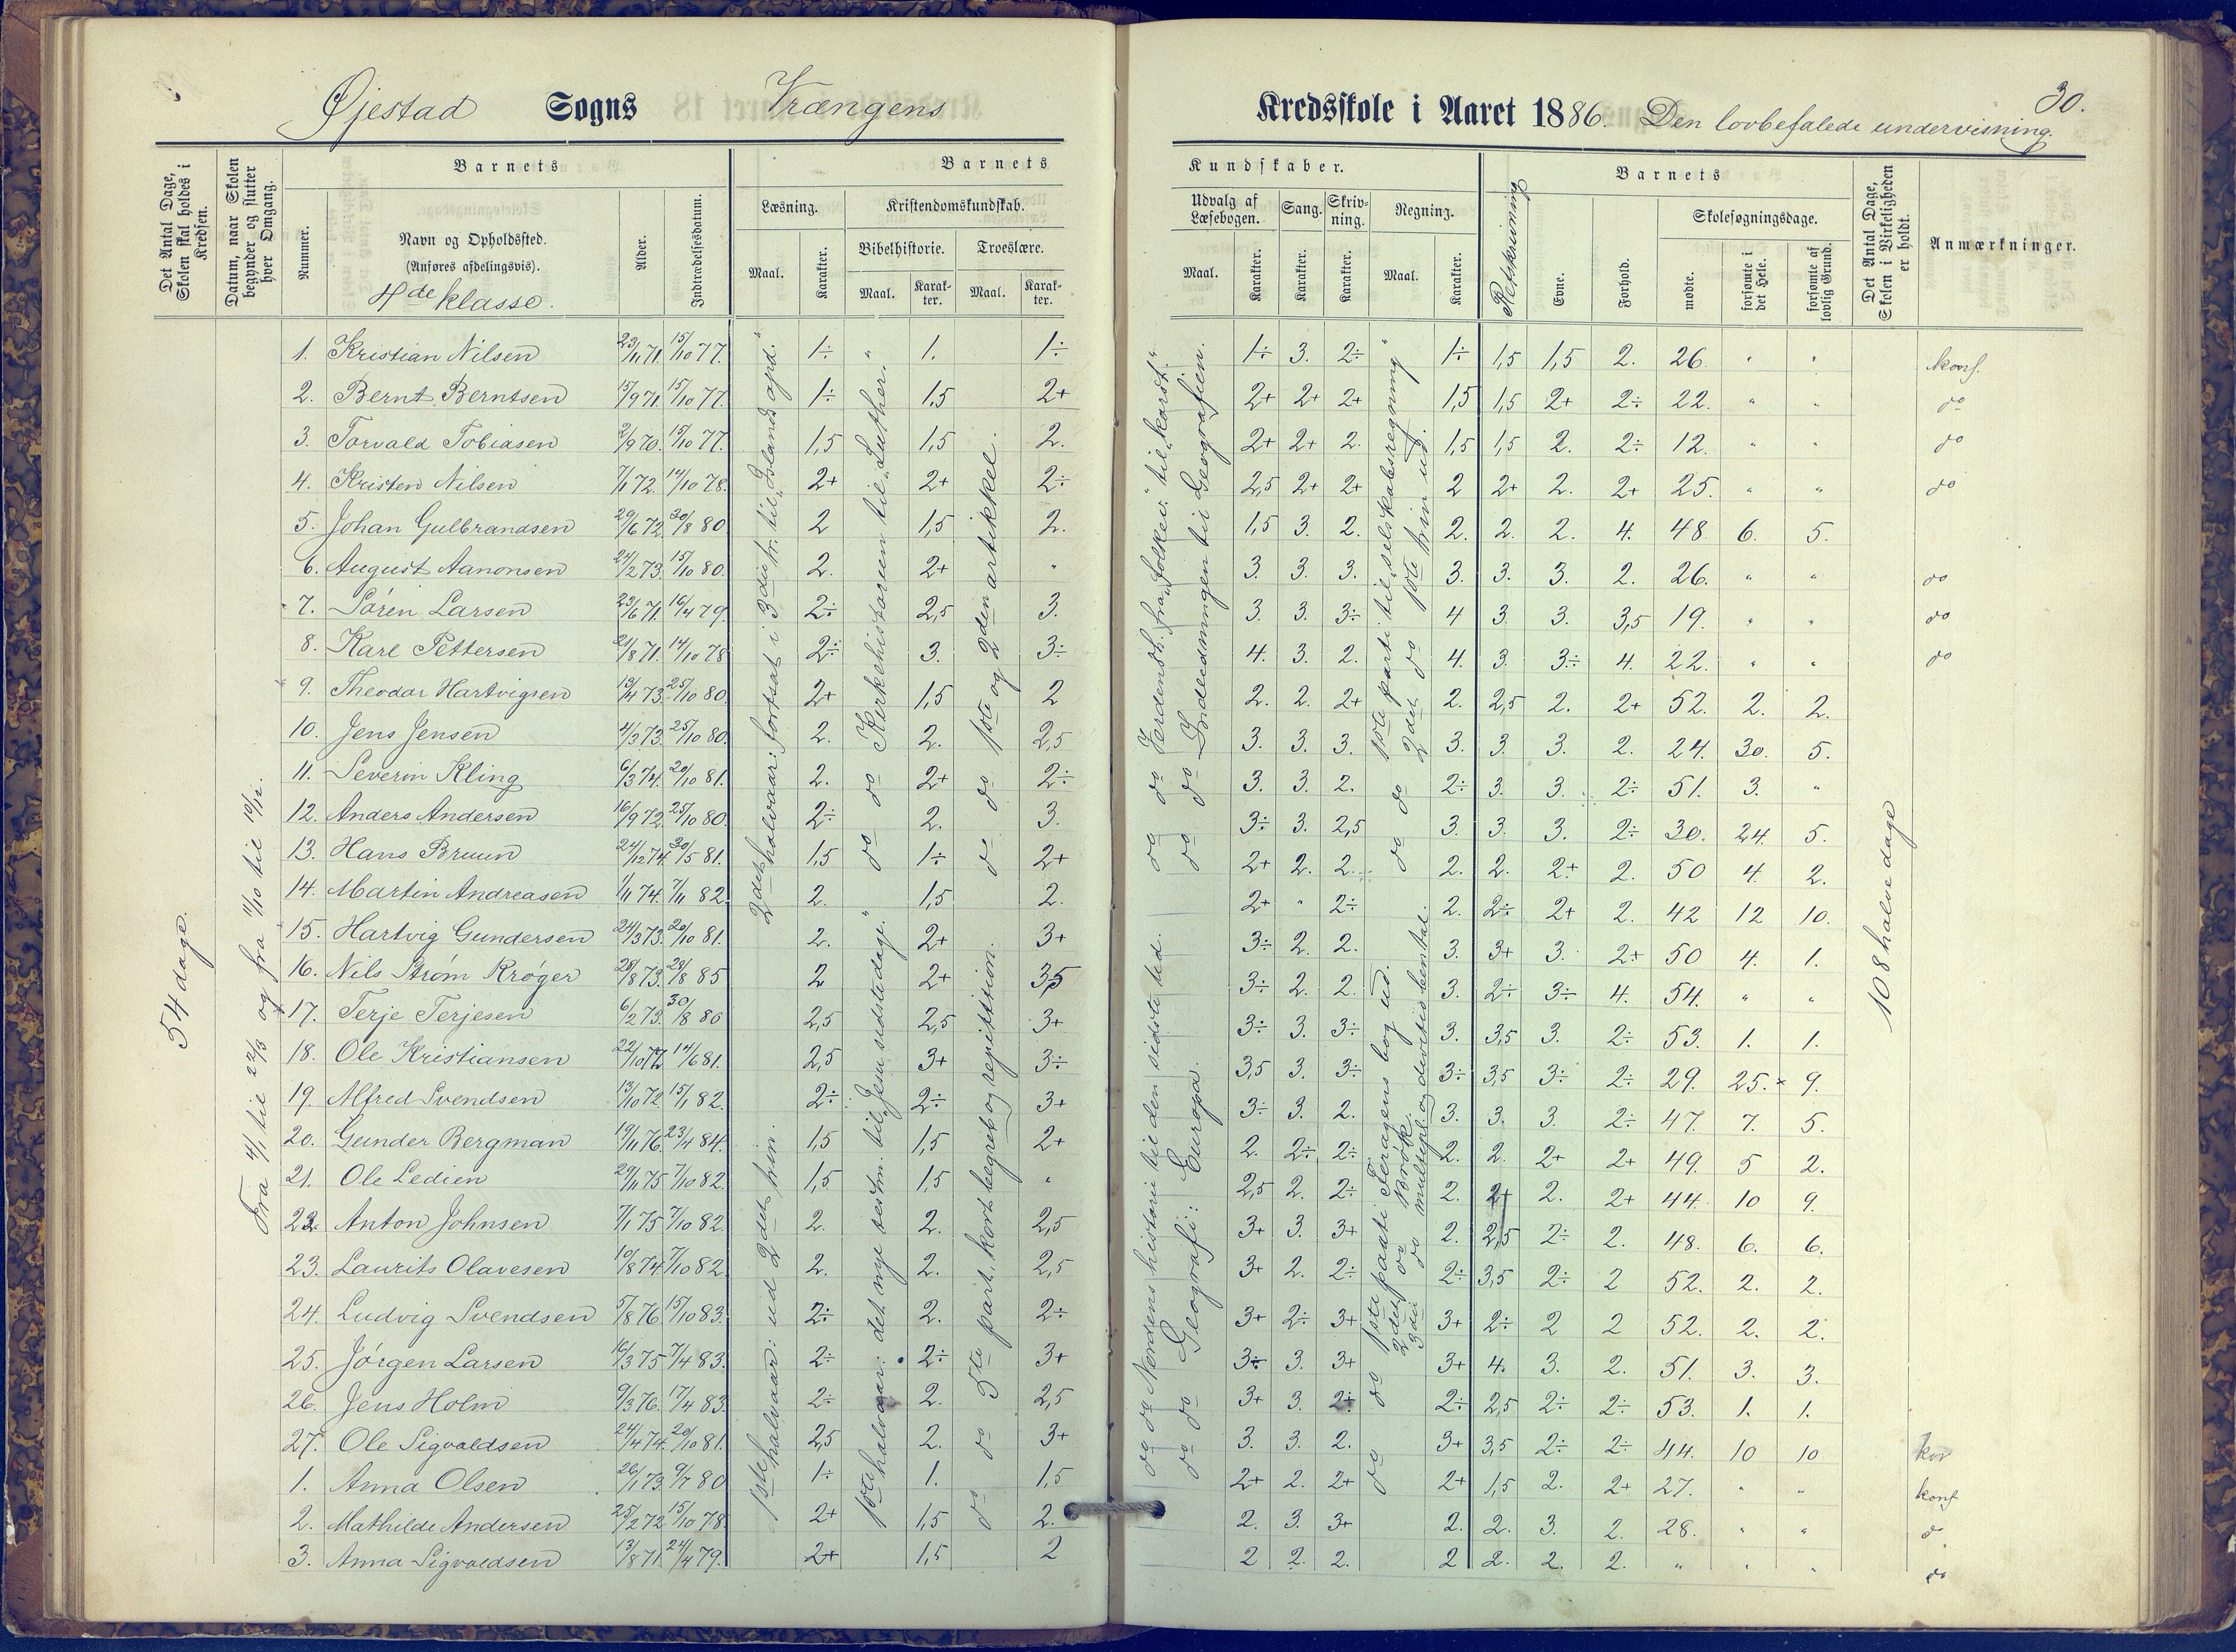 Øjestad Sogns Vrængens Kredsskole i Aaret 1886. Den lovbefalede undervisning.
30.
Det Antal Dage, Skolen skal holdes i Kredsen.
Datum, naar Skolen begynder og slutter hver Omgang.
Barnets
Nummer.
Navn og Opholdssted.
(Anføres afdelingsvis).
4de klasse.
Alder.
Indtrædelsesdatum.
Barnets Kundskaber.
Læsning.
Maal. Karakter.
Kristendomskundskab.
Bibelhistorie. Troeslære.
Maal. Karakter. Maal. Karakter.
Udvalg af Læsebogen. Sang. Skrivning. Regning.
Maal. Karakter. Karakter. Karakter. Maal. Karakter.
Retskrivning
Barnets
Evne. Forhold.
Skolesøgningsdage.
mødte. forsømte i det Hele. forsømte af lovlig Grund.
Det Antal Dage, Skolen i Virkeligheden er holdt.
Anmærkninger.
54 dage.
Fra 4/1 til 22/3 og fra 11/10 til 10/12.
1. Kristian Nilsen 23/11 71. 15/10 77. 1÷ " 1. 1÷ 1÷ 3. 2÷ 1÷ 1,5 1,5 2. 26 " " konf.
2. Bernt Berntsen 15/9 71. 15/10 77. 1÷ 1,5 2+ 2+ 2+ 2+ 1,5 1,5 2+ 2÷ 22. " " do
3. Torvald Tobiasen 2/9 70. 15/10 77. 1,5 1,5 2. 2+ 2+ 2. 1,5 1,5 2. 2÷ 12. " " do
4. Kristen Nilsen 7/1 72. 14/10 78. 2+ 2+ 2÷ 2,5 2+ 2+ 2 2+ 2. 2+ 25. " " do
5. Johan Gulbrandsen 29/6 72. 30/8 80 2 1,5 2. 1,5 3. 2. 2. 2. 2. 4. 48 6. 5.
6. August Aanonsen 24/2 73. 15/10 80. 2. 2+ " 3. 3. 3. 3. 3. 3. 2. 26. " " do
7. Søren Larsen 23/6 71. 16/4 79. 2÷ 2,5 3. 3. 3. 3÷ 4 3. 3. 3,5 19. " " do
8. Karl Pettersen 21/8 71. 14/10 78 2÷ 3. 3÷ 4. 3. 2. 4. 3. 3÷ 4. 22. " " do
9. Theodor Hartvigsen 13/4 73. 25/10 80. 2+ 1,5 2 2. 2. 2+ 2. 2,5 2. 2+ 52. 2. 2.
10. Jens Jensen 4/3 73. 25/10 80. 2. 2. 2,5 3. 3. 3. 3. 3. 3. 2. 24. 30. 5.
11. Severin Kling 6/3 74. 20/10 81. 2. 2+ 2÷ 3. 3. 2. 2÷ 3. 3. 2÷ 51. 3. "
12. Anders Andersen 16/9 72. 25/10 80. 2÷ 2. 3. 3÷ 3. 2,5 3. 3. 3. 2÷ 30. 24. 5.
13. Hans Bruun 24/12 74. 30/5 81. 1,5 1÷ 2+ 2+ 2. 2. 2. 2. 2+ 2. 50 4. 2.
14. Martin Andreasen 1/11 74. 7/11 82. 2. 1,5 2. 2+ " 2÷ 2. 2÷ 2+ 2. 42 12 10.
15. Hartvig Gundersen 24/3 73. 20/10 81. 2. 2+ 3+ 3÷ 2. 2. 3. 3+ 3. 2+ 50 4. 1.
16. Nils Strøm Krøger 28/8 73. 28/8 85 2 2+ 3,5 3÷ 2. 2. 3. 2÷ 3÷ 4. 54. " "
17. Terje Terjesen 6/2 73. 30/8 80 2,5 2,5 3+ 3÷ 3. 3÷ 3. 3,5 3. 2÷ 53. 1. 1.
18. Ole Kristiansen 22/10 72 14/6 81. 2,5 3+ 3÷ 3,5 3. 3÷ 3÷ 3,5 3÷ 2÷ 29. 25. 9.
19. Alfred Svendsen 13/10 72 15/1 82. 2÷ 2÷ 3+ 3÷ 3. 2. 3. 3. 3. 2÷ 47. 7. 5.
20. Gunder Bergman 19/11 76. 23/4 84. 1,5 1,5 2+ 2. 2÷ 2÷ 2. 2. 2+ 2+ 49. 5 2.
21. Ole Ledien 29/11 75 7/10 82. 1,5 1,5 " 2,5 2. 2÷ 2. 2+ 2. 2+ 44. 10 9.
22. Anton Johnsen 7/1 75 7/10 82. 2. 2. 2,5 3+ 3. 3+ 2. 2,5 2÷ 2. 48. 6. 6.
23. Laurits Olavesen 10/8 74 7/10 82. 2. 2. 2,5 3+ 2. 2÷ 2÷ 3,5 2÷ 2 52. 2. 2.
24. Ludvig Svendsen 5/8 76 15/10 83. 2÷ 2. 2÷ 3+ 2÷ 3+ 3+ 2÷ 2 2 52. 2. 2.
25. Jørgen Larsen 16/3 75 7/4 83. 2÷ 2÷ 3+ 3÷ 3. 3+ 3+ 4. 3. 2. 51. 3. 3.
26. Jens Holm 9/3 76. 17/4 83. 2÷ 2. 2,5 3+ 3. 2÷ 2÷ 2,5 2÷ 2÷ 53. 1. 1.
27. Ole Sigvaldsen 24/4 74. 20/10 81. 2,5 2. 3+ 3. 3. 2. 3+ 3,5 2÷ 2÷ 44. 10 10 kon
1. Anna Olsen 26/1 73. 9/7 80 1÷ 1. 1,5 2+ 2. 2+ 2+ 1,5 2. 2+ 27. " " konf
2. Mathilde Andersen 25/2 72 15/10 78. 2+ 1,5 2. 2. 3. 3+ 2. 2. 3. 2. 28. " " do
3. Anna Sigvaldsen 13/8 71. 24/4 79. 2+ 1,5 2 2 2. 2. 2 2. 2. 2. " " " do
1ste halvaar: ud 2det trin.
2det halvaar: fortsat i 3die tr. til "Islands opd."
1ste halvaar: det nye testm. til "Jesu sidste dage."
do do Kirkehistorien til "Luther."
do 5te part, kort begreb og repitition.
do do 1ste og 2den artikkel.
do do Nordens historie til den sidste tid.
do do Geografi: Europa.
do do Verdensh. fra "folkev." til "korst."
do do Indledningen til Geografien.
do do 1ste part i Feragens bog ud.
2det do Brøk.
3die do multipl. og devitis bental.
do do 1ste parti til "selskabsregning"
2det do 1ste trin ud.
108 halve dage